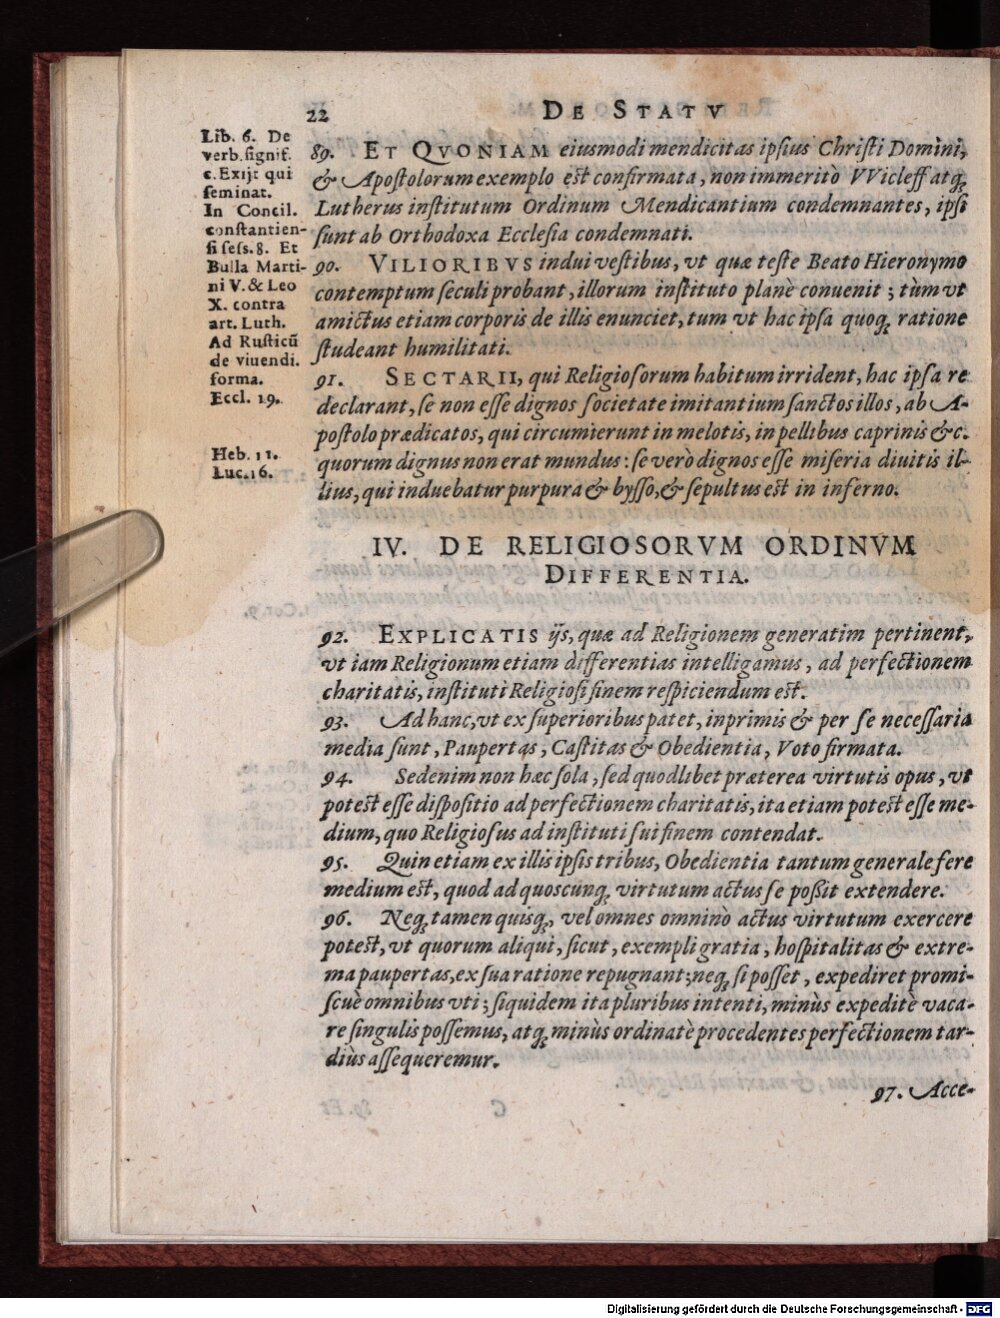 22
DE STATV
Lib. 6. De
verb. signif.
c. Exijt qui
seminat.
In Concil.
constantien-
si sess. 8. Et
Bulla Marti-
ni V. & Leo
X. contra
art. Luth.
Ad Rusticũ
de viuendi.
forma.
Eccl. 19.
Heb. 11.
Luc. 16.
89. ET QVONIAM eiusmodi mendicitas ipsius Christi Domini,
& Apostolorum exemplo est confirmata, non immeritò VVicleff atq;
Lutherus institutum Ordinum Mendicantium condemnantes, ipsi
sunt ab Orthodoxa Ecclesia condemnati.
90. VILIORIBVS indui vestibus, vt quæ teste Beato Hieronymo
contemptum seculi probant, illorum instituto planè conuenit; tùm vt
amictus etiam corporis de illis enunciet, tum vt hac ipsa quoq; ratione
studeant humilitati.
91. SECTARII, qui Religiosorum habitum irrident, hac ipsa re
declarant, se non esse dignos societate imitantium sanctos illos, ab A-
postolo prædicatos, qui circumierunt in melotis, in pellibus caprinis &c.
quorum dignus non erat mundus: se verò dignos esse miseria diuitis il-
lius, qui induebatur purpura & bysso, & sepultus est in inferno.
IV. DE RELIGIOSORVM ORDINVM
DIFFERENTIA.
92. EXPLICATIS ijs, quæ ad Religionem generatim pertinent,
vt iam Religionum etiam differentias intelligamus, ad perfectionem
charitatis, instituti Religiosi finem respiciendum est.
93. Ad hanc, vt ex superioribus patet, inprimis & per se necessaria
media sunt, Paupertas, Castitas & Obedientia, Voto firmata.
94. Sed enim non hæc sola, sed quodlibet præterea virtutis opus, vt
potest esse dispositio ad perfectionem charitatis, ita etiam potest esse me-
dium, quo Religiosus ad instituti sui finem contendat.
95. Quin etiam ex illis ipsis tribus, Obedientia tantum generale fere
medium est, quod ad quoscunq; virtutum actus se poßit extendere.
96. Neq; tamen quisq;, vel omnes omninò actus virtutum exercere
potest, vt quorum aliqui, sicut, exempli gratia, hospitalitas & extre-
ma paupertas, ex sua ratione repugnant; neq; si posset, expediret promi-
scuè omnibus vti; siquidem ita pluribus intenti, minùs expeditè vaca-
re singulis possemus, atq; minùs ordinatè procedentes perfectionem tar-
diùs assequeremur.
97. Acce-
Digitalisierung gefördert durch die Deutsche Forschungsgemeinschaft - DFG